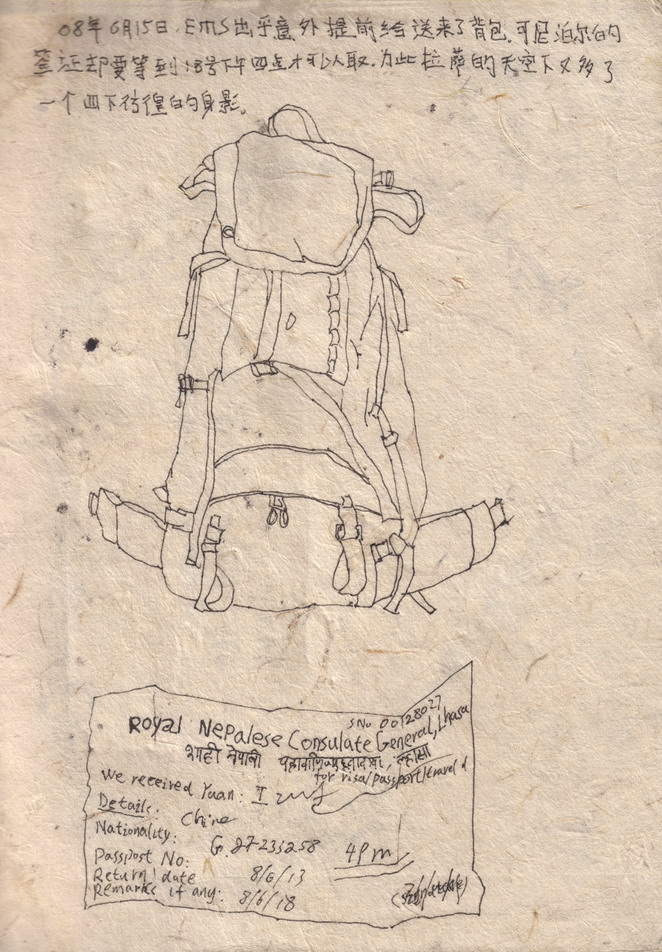 08年6月15日,EMS出乎意外提前给送来了背包.可尼泊尔的
签证却要等到18号下午四点才可以取.为此拉萨的天空下又多了
一个四下彷徨的身影。
SNo 00128027
Royal Nepalese Consulate General, Lhasa
शाही नेपाली ल्हासा
for visa/passport/travel d
We received Yuan:
Details.
China
Nationality:
G 27233258
Passpost No:
4pm
Return date 8/6/13
Remarks if any: 8/6/18